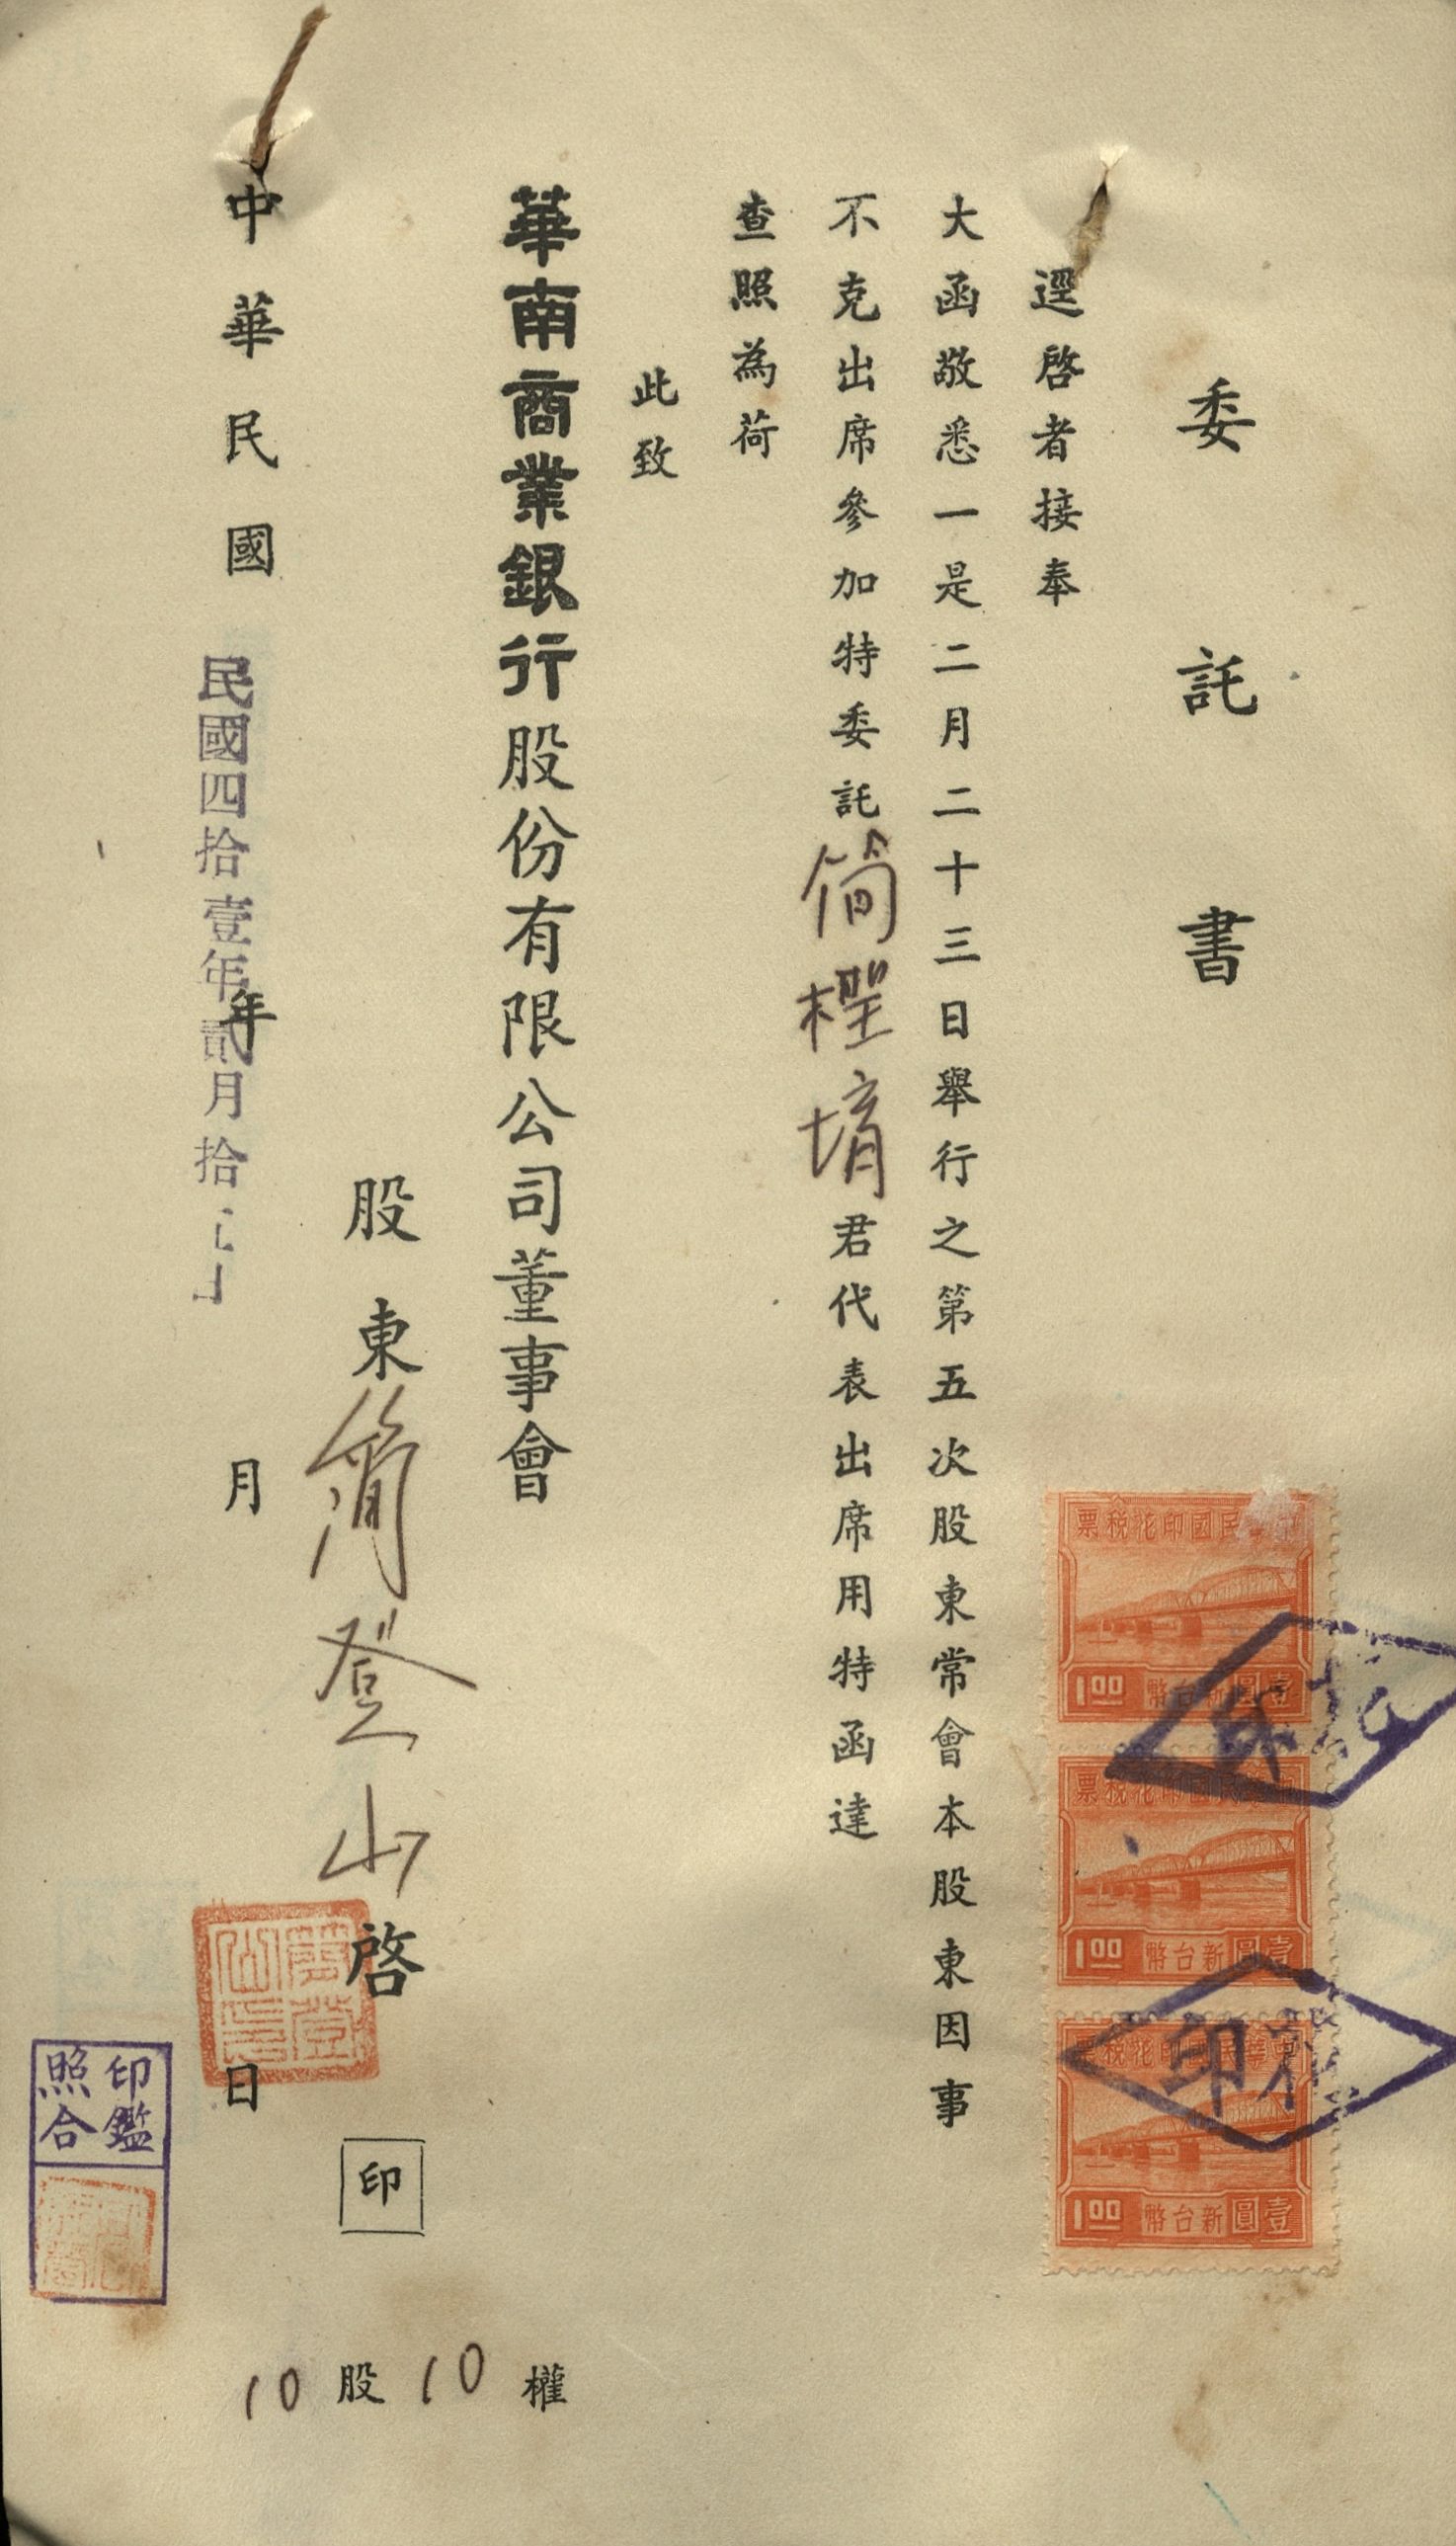 委託書
逕啓者接奉
大函敬悉一是二月二十三日舉行之第五次股東常會本股東因事
不克出席參加特委託簡檉堉君代表出席用特函達
查照為荷
此致
華南商業銀行股份有限公司董事會
股東簡登山啓 印
中華民國 年 月 日
民國四拾壹年貳月拾
10股10權
印鑑
照合
中華民國印花稅票
1.00 新台幣壹圓
中華民國印花稅票
1.00 新台幣壹圓
中華民國印花稅票
1.00 新台幣壹圓